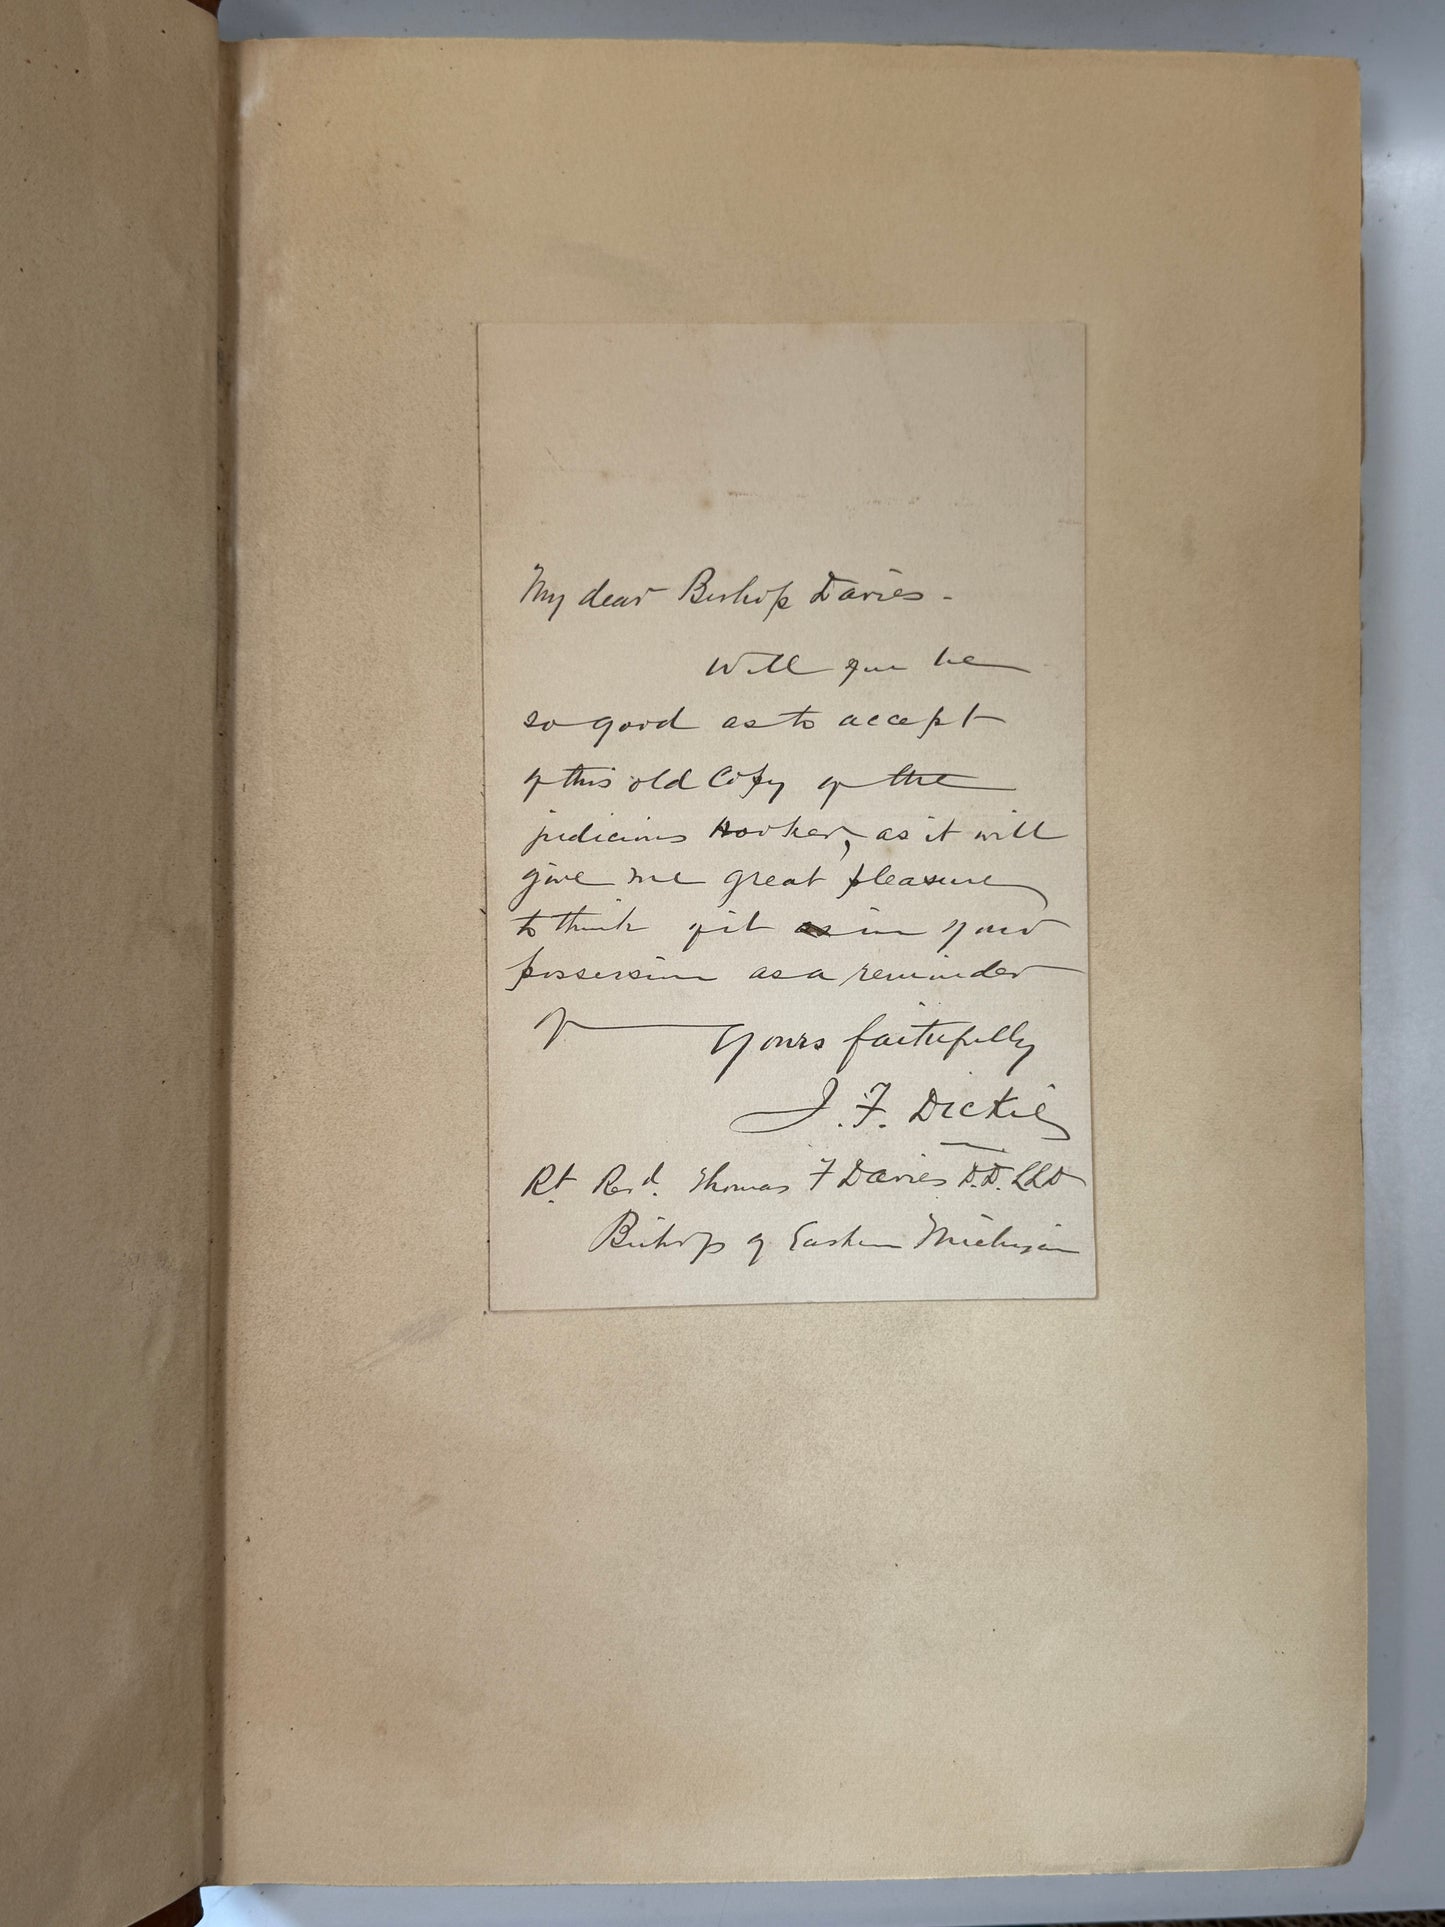 My dear Bishop Davies -
Will you be
so good as to accept
of this old Copy of the
judicious Hooker, as it will
give me great pleasure
to think of it as in your
possession as a reminder
of Yours faithfully
J. F. Dickie
Rt. Revd. Thomas F Davies D.D. LLD
Bishop of Eastern Michigan